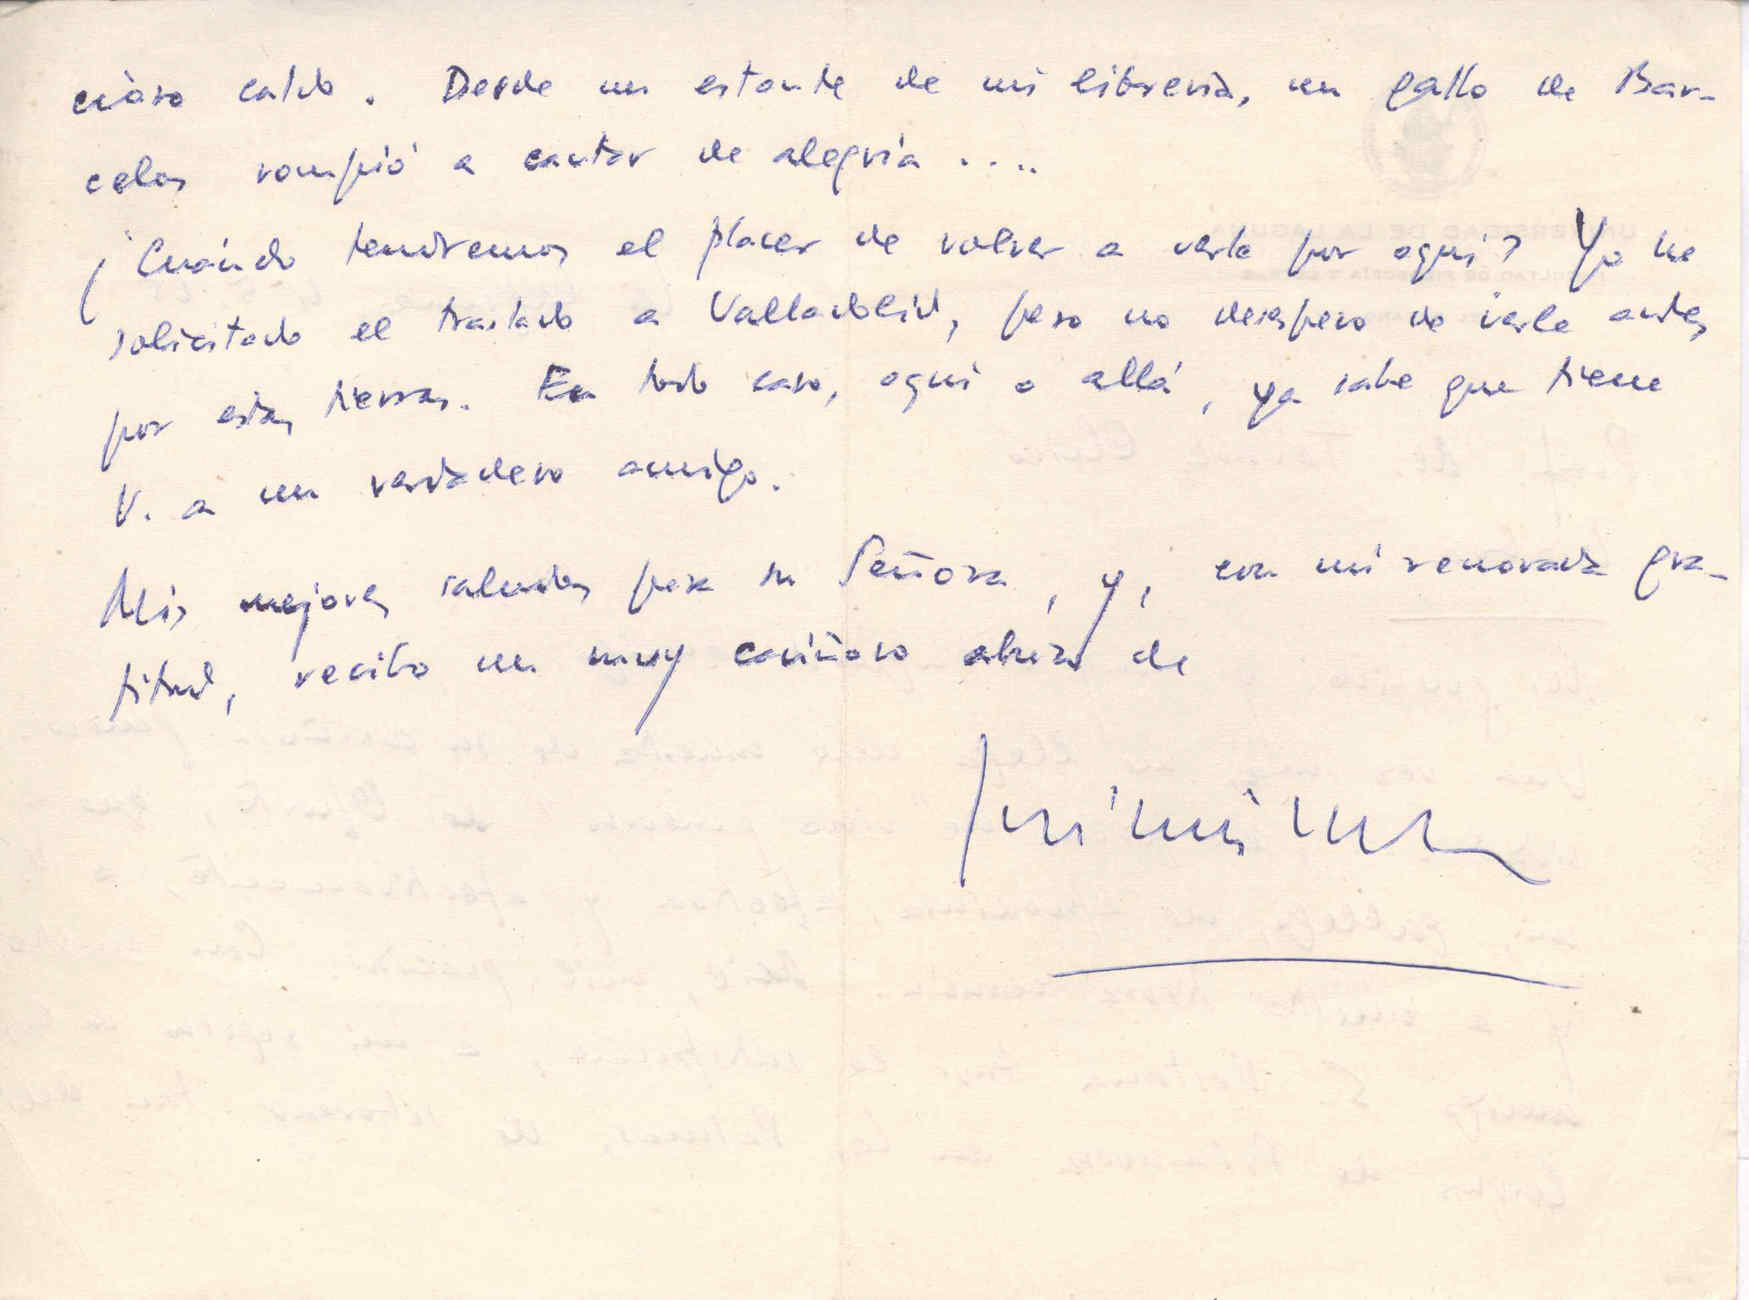 cioso caldo. Desde un estante de mi librería, un gallo de Bar-
celos rompió a cantar de alegría ....
¿Cuándo tendremos el placer de volver a verle por aquí? Yo he
solicitado el traslado a Valladolid, pero no desespero de verle antes
por estas tierras. En todo caso, aquí o allá, ya sabe que tiene
V. a un verdadero amigo.
Mis mejores saludos para su Señora, y, con mi renovada gra-
titud, reciba un muy cariñoso abrazo de